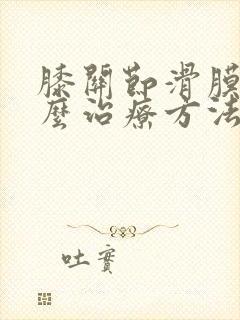 膝關節滑膜
麼治療方法
吐實